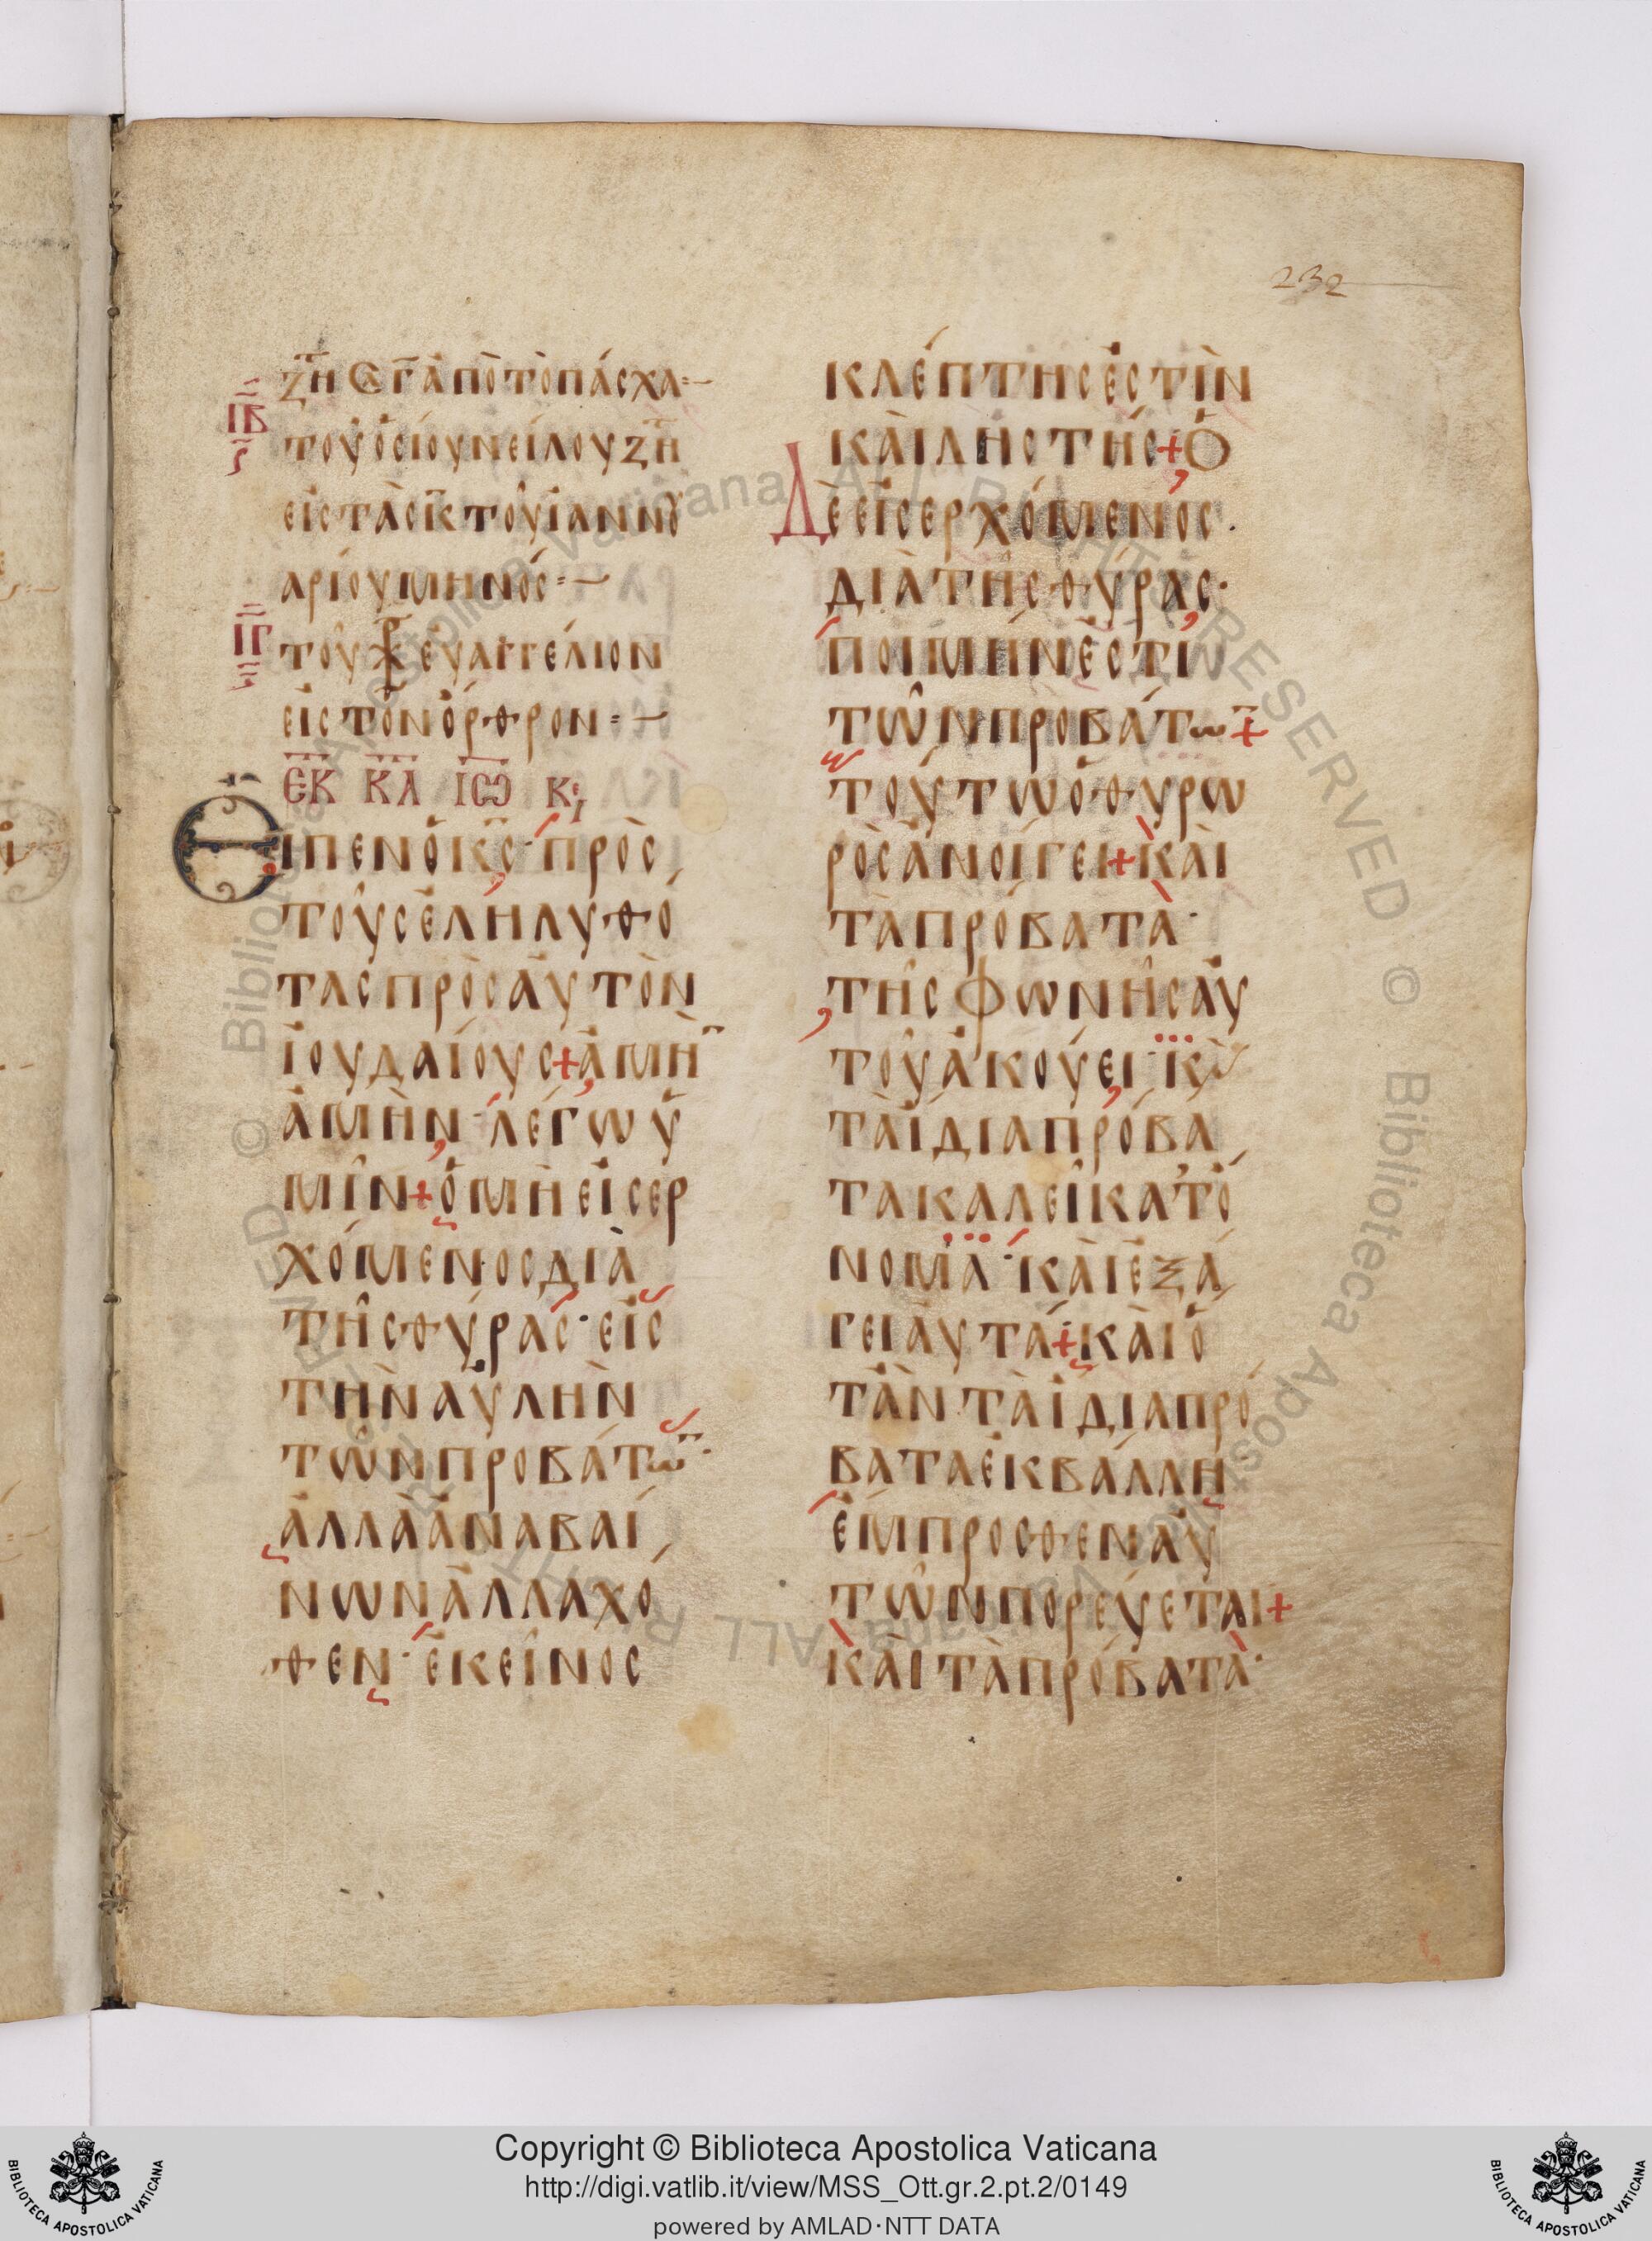 232
ζη Σα γ ἀπὸ τὸ πάσχα
ΙΒ
τοῦ ὁσίου νείλου ζη
εἰς τὰς κ τοῦ ἰαννου
αρίου μηνός
ΙΓ
τοῦ χρ ευαγγελιον
εἰς τὸν ὄρθρον
ΕΚ ΚΛ ΙΩ Κε
Εἶπεν ὁ κς πρὸς
τοὺς ἐληλυθό
τας πρὸς αὐτὸν
ἰουδαίους + ἀμὴ
ἀμὴν λέγω ὑ
μῖν + ὁ μὴ εἰσερ
χόμενος διὰ
τῆς θύρας εἰς
τὴν αὐλὴν
τῶν προβάτω
ἀλλὰ ἀναβαί
νων ἀλλαχό
θεν ἐκεῖνος
κλέπτης ἐστὶν
καὶ ληστής + Ὁ
Δὲ εἰσερχόμενος
διὰ τῆς θύρας
ποιμήν ἐστι
τῶν προβάτω +
τούτω ὁ θυρω
ρὸς ἀνοίγει + καὶ
τὰ πρόβατα
τῆς φωνῆς αὐ
τοῦ ἀκούει κ
τὰ ἴδια πρόβα
τα καλεῖ κατὸ
νομα καὶ ἐξά
γει αὐτά + καὶ ὅ
τὰν τὰ ἴδια πρό
βατα ἐκβάλλη
ἔμπροσθεν αὐ
τῶν πορεύεται +
καὶ τὰ πρόβατα
Copyright © Biblioteca Apostolica Vaticana
http://digi.vatlib.it/view/MSS_Ott.gr.2.pt.2/0149
powered by AMLAD·NTT DATA
BIBLIOTECA APOSTOLICA VATICANA
BIBLIOTECA APOSTOLICA VATICANA